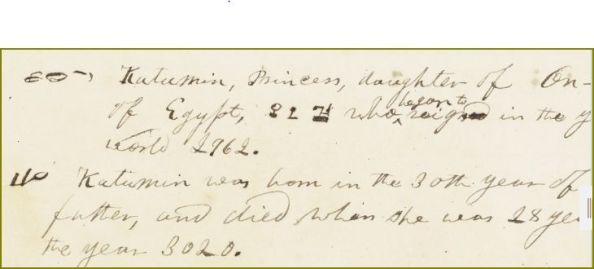 Katumin, Princess, daughter of On-
of Egypt, who began to reign in the y
world 2962.
Katumin was born in the 30th year of
father, and died when she was 28 yea
the year 3020.